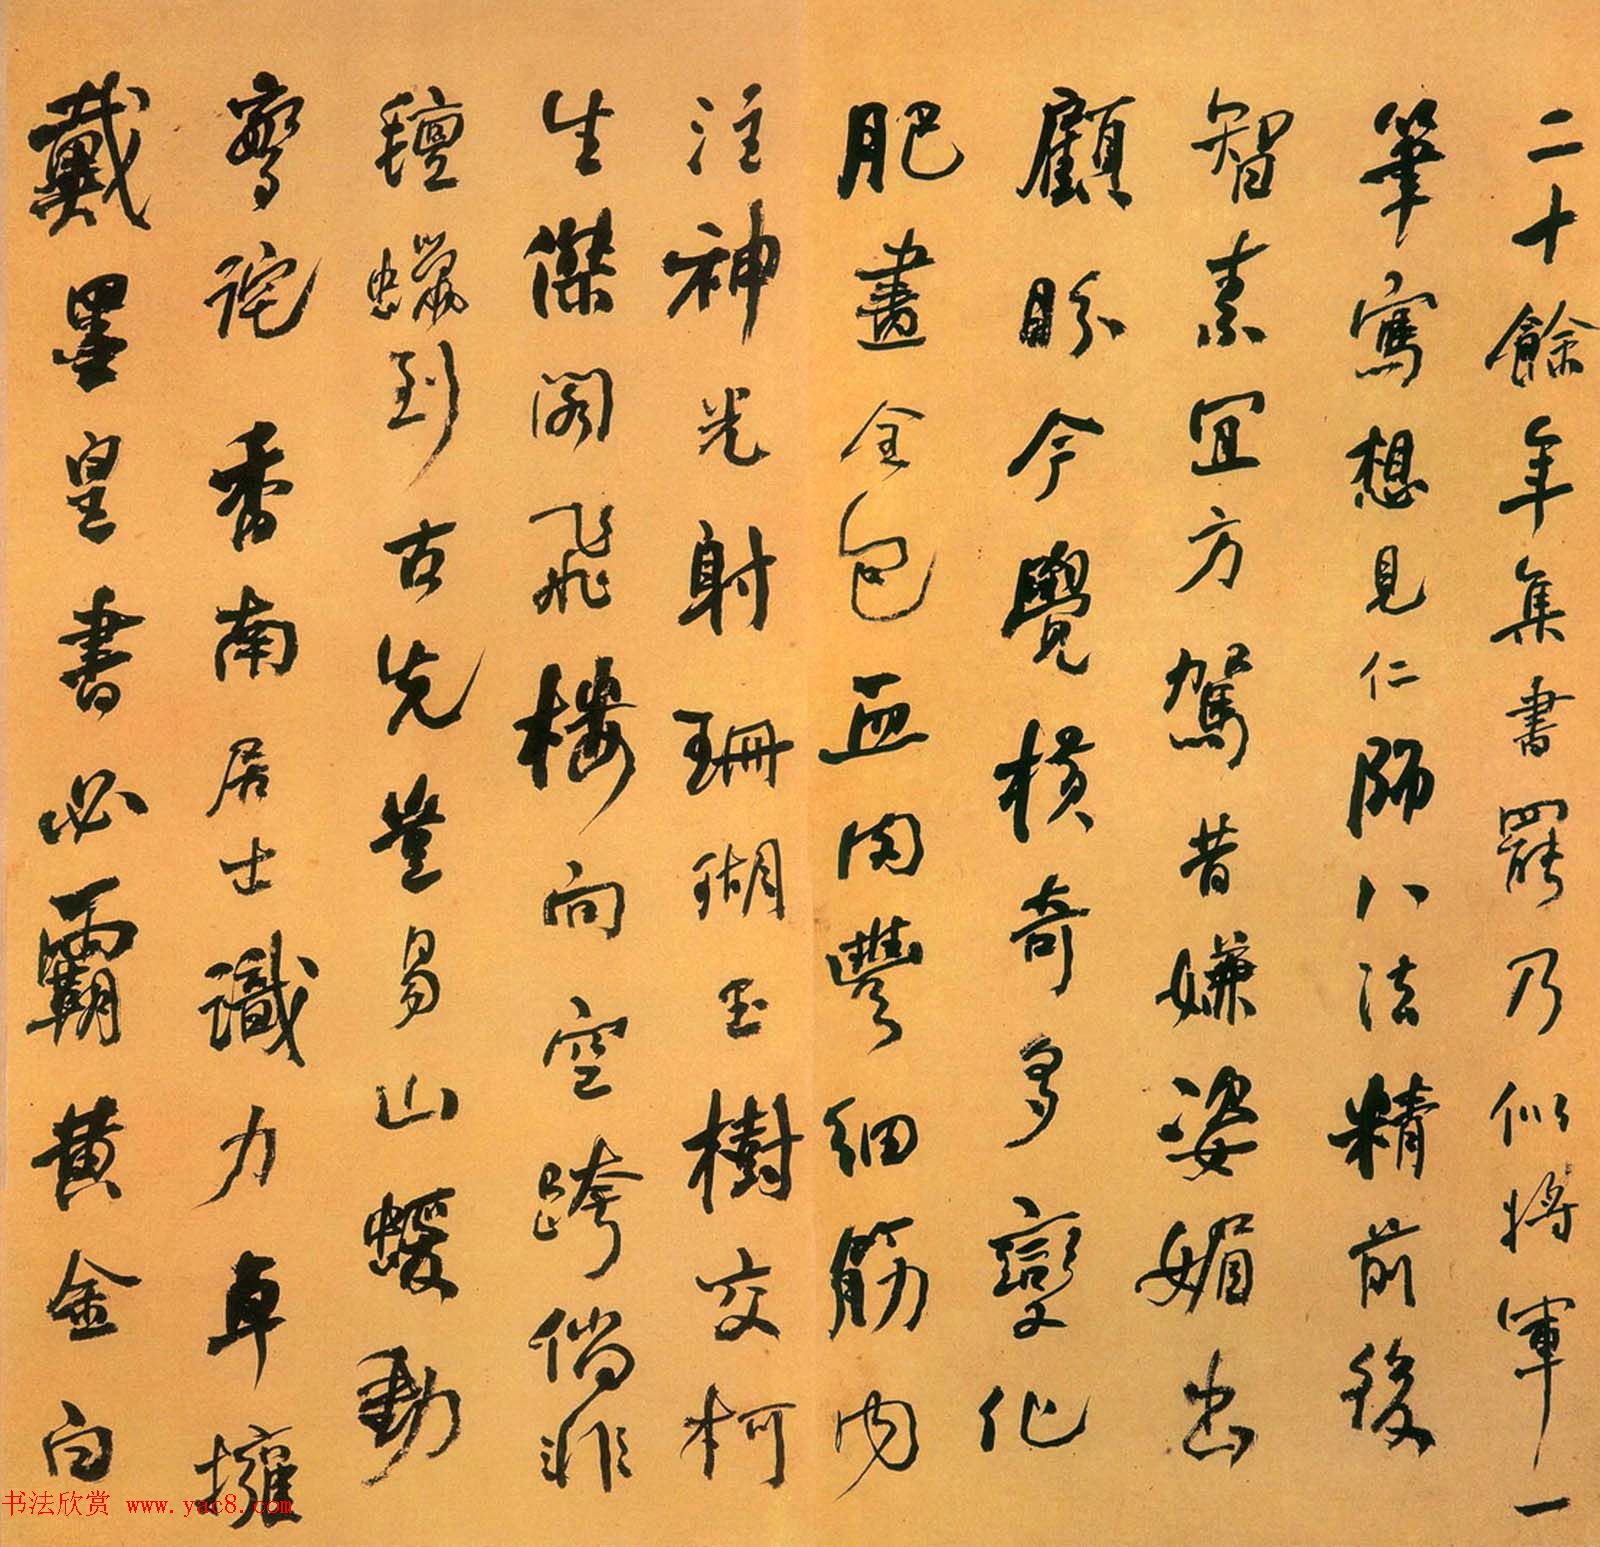 二十餘年集書罷乃似將軍一
筆寫想見仁師八法精前後
智素宜方駕昔嫌姿媚出
顧盼今覺橫奇多變化
肥畫全包血肉豐細筋內
注神光射珊瑚玉樹交柯
生傑閣飛樓向空跨倘非
氊蠟到古先豈易山蝯動
驚詫香南居士識力卓擁
戴墨皇書必霸黃金白
书法欣赏 www.yac8.com